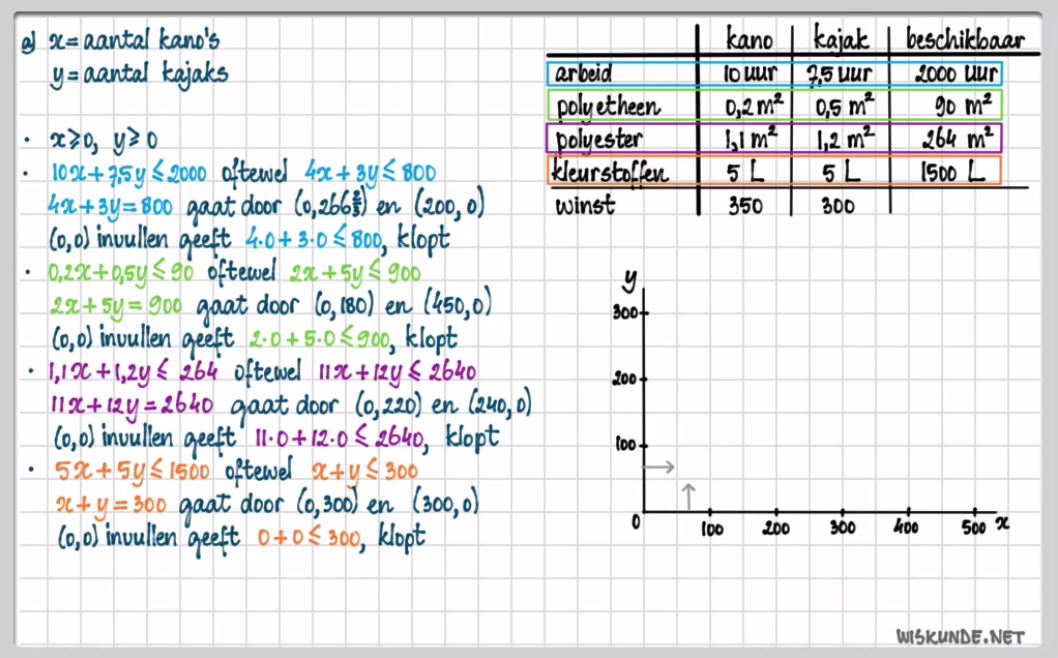 a) x = aantal kano's
y = aantal kajaks
• x ≥ 0, y ≥ 0
• 10x + 7,5y ≤ 2000 oftewel 4x + 3y ≤ 800
4x + 3y = 800 gaat door (0, 266⅔) en (200, 0)
(0,0) invullen geeft 4·0 + 3·0 ≤ 800, klopt
• 0,2x + 0,5y ≤ 90 oftewel 2x + 5y ≤ 900
2x + 5y = 900 gaat door (0, 180) en (450, 0)
(0,0) invullen geeft 2·0 + 5·0 ≤ 900, klopt
• 1,1x + 1,2y ≤ 264 oftewel 11x + 12y ≤ 2640
11x + 12y = 2640 gaat door (0, 220) en (240, 0)
(0,0) invullen geeft 11·0 + 12·0 ≤ 2640, klopt
• 5x + 5y ≤ 1500 oftewel x + y ≤ 300
x + y = 300 gaat door (0, 300) en (300, 0)
(0,0) invullen geeft 0 + 0 ≤ 300, klopt
kano kajak beschikbaar
arbeid 10 uur 7,5 uur 2000 uur
polyetheen 0,2 m² 0,5 m² 90 m²
polyester 1,1 m² 1,2 m² 264 m²
kleurstoffen 5 L 5 L 1500 L
winst 350 300
y
300
200
100
0 100 200 300 400 500 x
WISKUNDE.NET